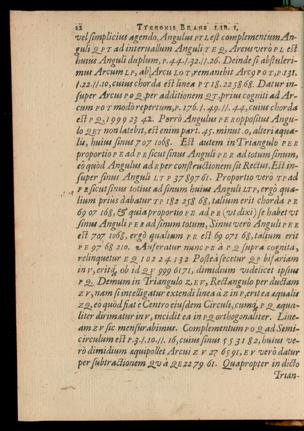 12 TYCHONIS BRAHE LIB. I.
vel simplicius agendo, Angulus PTL est complementum An-
guli QPT ad intervallum Anguli TEQ. Arcus verò PL est
huius Anguli duplum, p.44.l.32.//.26. Deinde si abstuleri-
mus Arcum LP, ab Arcu LOT, remanebit Arcq POT, p.131.
l.22.//.10, cuius chorda est linea PT 18.22568. Datur in-
super Arcus POQ per additionem QT, prius cogniti ad Ar-
cum POT modò repertum, p.176.l.49.//.44, cuius chorda
est PQ, 1999 23 42. Porrò Angulus PER oppositus Angu-
lo QET non latebit, est enim part. 45. minut. 0, alteri æqua-
lis, huius sinus 707 1068. Est autem in Triangulo PER
proportio PE ad PR sicut sinus Anguli PER ad totum sinum,
eò quòd Angulus ad R per constructionem sit Rectus. Est in-
super sinus Anguli LTP 3789761. Proportio verò TP ad
PR sicut sinus totius ad sinum huius Anguli LTP, ergò qua-
lium prius dabatur TP 182 258 68, talium erit chorda PR
69 07 168, & quia proportio PE ad PR (ut dixi) se habet ut
sinus Anguli PER ad sinum totum, Sinus verò Anguli PER
est 707 1068, ergò qualium PR est 69 071 68, talium erit
PE 97 68 210. Auferatur nunc PE à PQ supra cognita,
relinquetur EQ 102 24 132 Posteà secetur QP bifariam
in V, eritq, ob id QV 999 6171, dimidium videlicet ipsius
PQ. Demum in Triangulo ZEV, Rectangulo per ductam
ZV, nam si intelligatur extendi linea à Z in P, erit ea æqualis
ZQ, eò quòd fiat è Centro eiusdem Circuli, cumq, PQ æqua-
liter dirimatur in V, incidit ea in PQ orthogonaliter. Line-
am ZV sic mensurabimus. Complementum POQ ad Semi-
circulum est p.3.l.10.//.16, cuius sinus 553182, huius ve-
rò dimidium æquipollet Arcui ZV 276591, EV verò datur
per subtractionem QV à QE 22796 1. Quapropter in dicto
Trian-